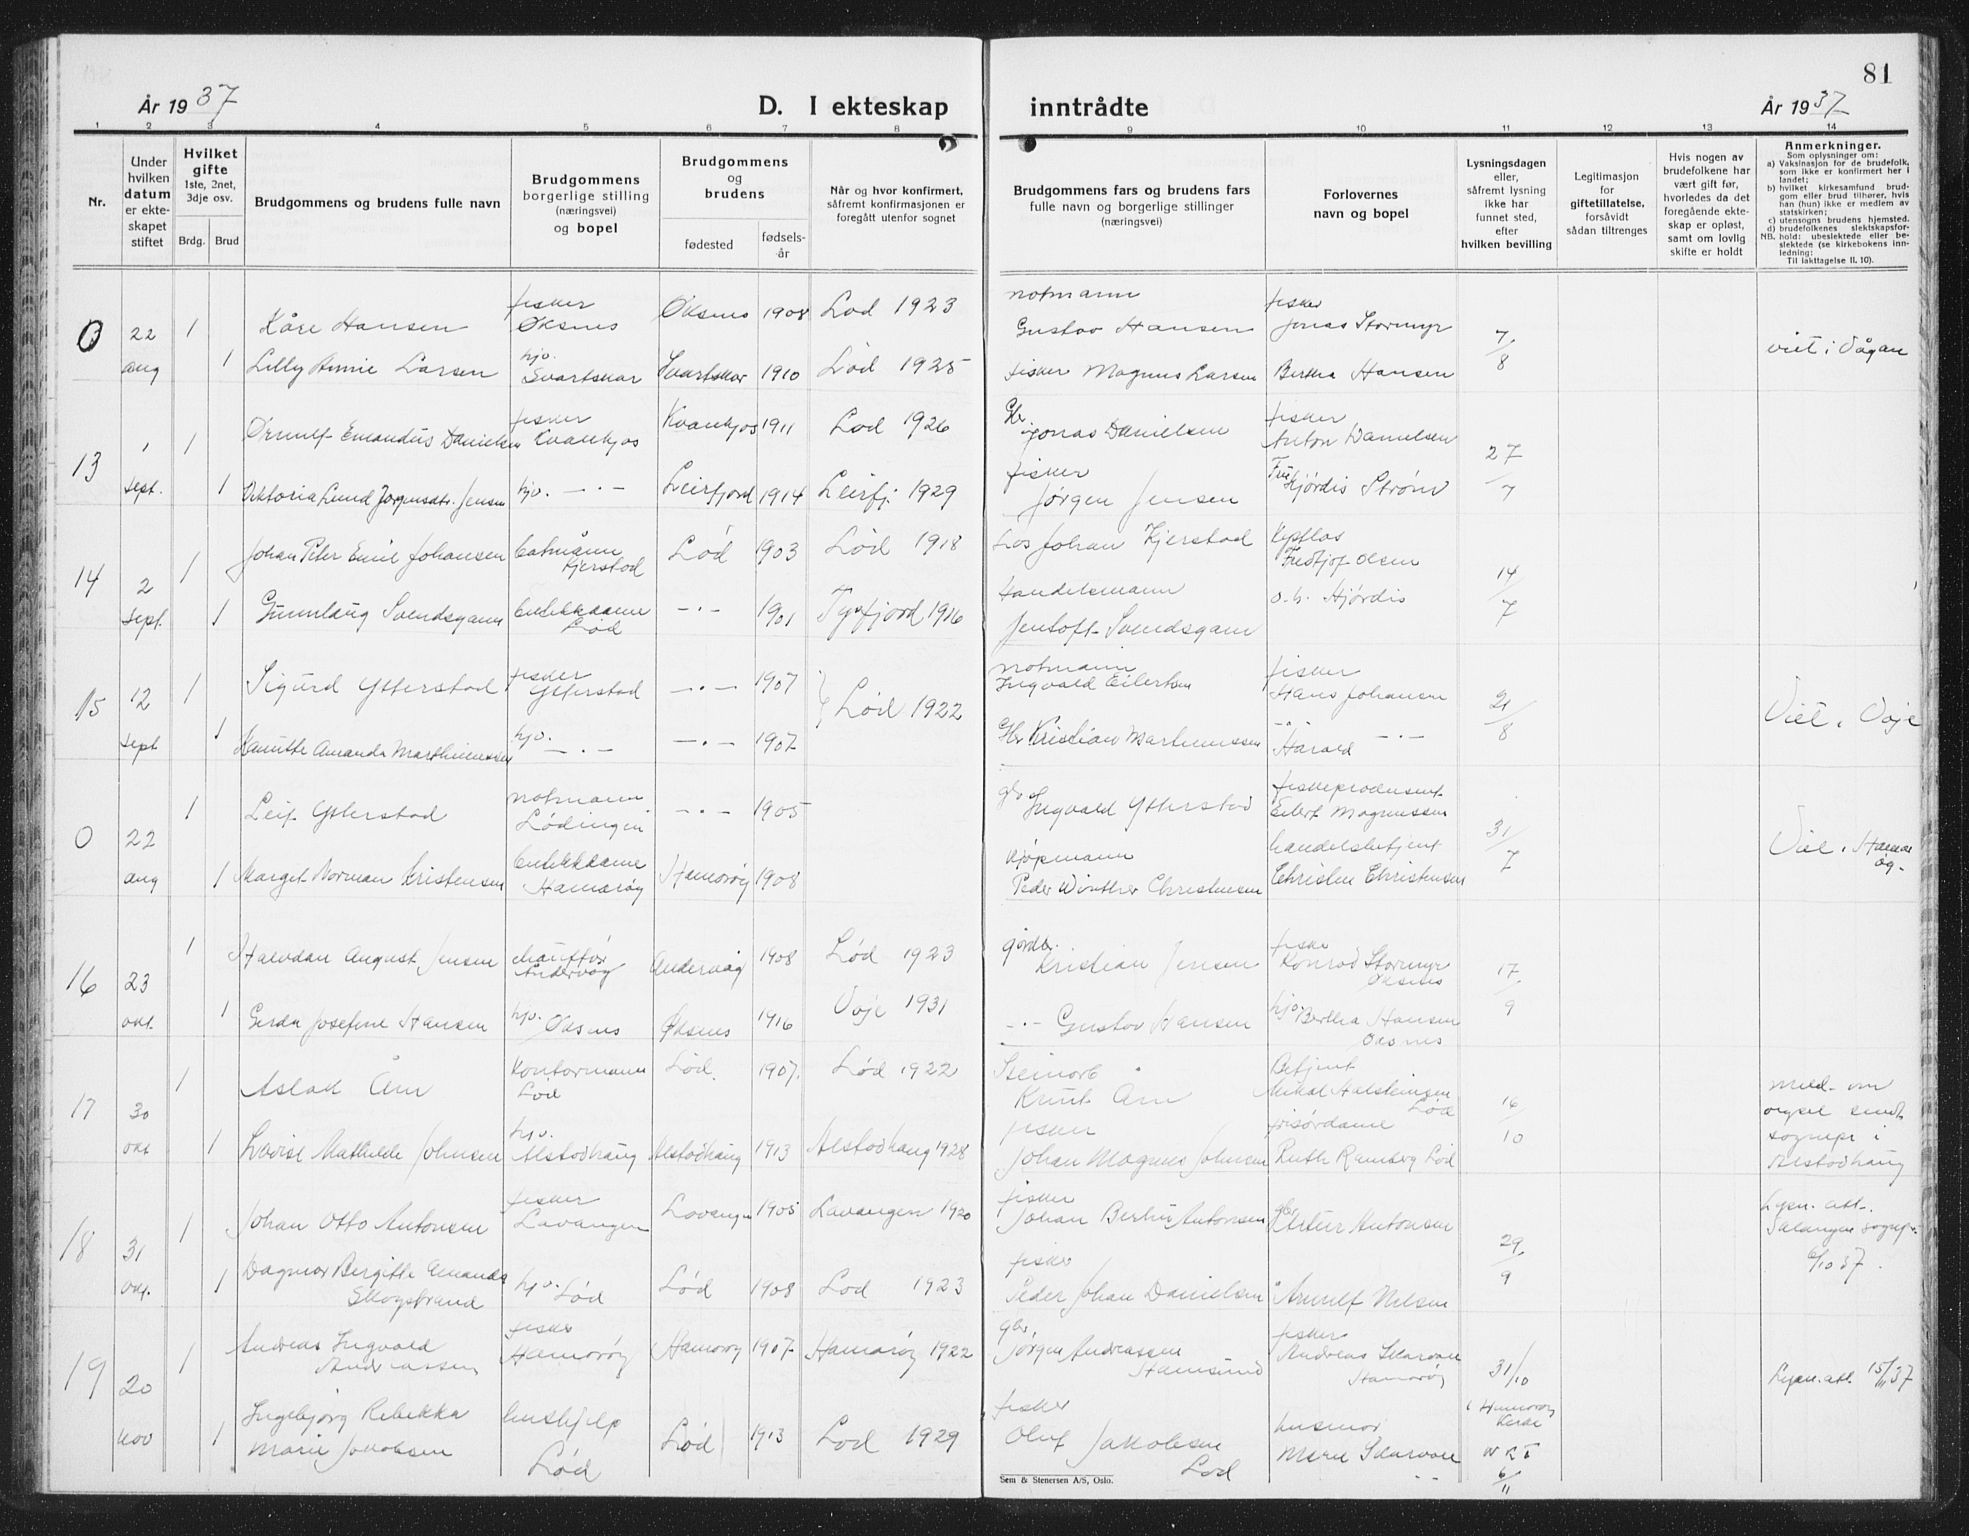 81
År 1937
D. I ekteskap inntrådte
År 1937
1 2 3 4 5 6 7 8 9 10 11 12 13 14
Nr.
Under hvilken datum er ekteskapet stiftet
Hvilket gifte
1ste, 2net, 3dje osv.
Brdg. Brud
Brudgommens og brudens fulle navn
Brudgommens borgerlige stilling
(næringsvei)
og bopel
Brudgommens og brudens
fødested
fødsels-år
Når og hvor konfirmert, såfremt konfirmasjonen er foregått utenfor sognet
Brudgommens fars og brudens fars
fulle navn og borgerlige stillinger
(næringsvei)
Forlovernes
navn og bopel
Lysningsdagen eller, såfremt lysning ikke har funnet sted, efter hvilken bevilling
Legitimasjon for giftetillatelse, forsåvidt sådan tiltrenges
Hvis nogen av brudefolkene har vært gift før, hvorledes da det foregående ekteskap er opløst, samt om lovlig skifte er holdt
Anmerkninger.
Som oplysninger om:
a) Vaksinasjon for de brudefolk, som ikke er konfirmert her i landet;
b) hvilket kirkesamfund brudgom eller brud tilhører, hvis han (hun) ikke er medlem av statskirken;
c) utensogns brudens hjemsted.
d) brudefolkenes slektskapsforhold: ubeslektede eller beslektede (se kirkebokens innledning:
NB.
Til iakttagelse II. 10).
0 22 aug 1 Kåre Hansen fisker Øksnes Øksnes 1908 Lød 1923 notmann Gustav Hansen fisker Jonas Stormyr 7/8 viet i Vågan
1 Lilly Annie Larsen hjv. Svartskar Svartskar 1910 Lød 1925 fisker Magnus Larsen Bertha Hansen
13 1 sept. 1 Ørnulf Emandus Danielsen fisker Kvankjos Kvankjos 1911 Lød 1926 Gbr Jonas Danielsen fisker Anton Danielsen 27/7
1 Viktoria Lund Jørgensdtr. Jensen hjv. -"- Leirfjord 1914 Leirfj. 1929 fisker Jørgen Jensen Fru Hjördis Strøm
14 2 sept. 1 Johan Peter Emil Johansen Kjerstad Lød 1903 Lød 1918 Los Johan Kjerstad Fridtjof Olsen 14/7
1 Gunnlaug Svendsgam butikkdame Lød -"- 1901 Tysfjord 1916 Handelsmann Jentoft Svendsgam o.h. Hjørdis
15 12 sept 1 Sigurd Ytterstad fisker Ytterstad -"- 1907 Lød 1922 notmann Ingvald Eilertsen fisker Hans Johansen 21/8 Viet i Voje
1 Kanutte Amanda Marthinussen hjv. -"- -"- 1907 Gbr Kristian Marthinussen -"- Harald -"-
0 22 aug 1 Leif Ytterstad notmann Lødingen -"- 1905 gbr Ingvald Ytterstad fiskeprodusent Eilert Magnussen 31/7 Viet i Hamarøg.
1 Margit Norman Kristensen butikkdame Hamarøy Hamarøy 1908 Kjøpmann Peder Winther Christensen handelsbetjent Christen Christensen
16 23 okt. 1 Halvdan August Jensen chauffør Andervåg Andervåg 1908 Lød 1923 gårdbr. Kristian Jensen fisker Konrad Stormyr Øksnes 17/9
1 Gerda Josefine Hansen hjv. Øksnes Øksnes 1916 Voje 1931 -"- Gustav Hansen hjv. Bertha Hansen Øksnes
17 30 okt 1 Aslak Åm Kontormann Lød Lød. 1907. Lød 1922 Steinarb Knut Åm Betjent Mikal Halsteinsen Lød 16/10 meld. om sendt sognepr i Alstadhaug
1 Lovise Mathilde Johnsen hjv. Alstadhaug Alstadhaug 1913 Alstadhaug 1928 fisker Johan Magnus Johnsen frisørdame Ruth Ramberg Lød
18 31 okt. 1 Johan Otto Antonsen fisker Lavangen Lavangen 1905 Lavangen 1920 fisker Johan Antonsen gbr Artur Antonsen 29/9 Lysn. att. Salangen sognepr. 6/10 37.
1 Dagmar Bergitte Amanda Skogstrand hjv. Lød Lød 1908 Lød 1923 fisker Peder Johan Danielsen " Arnulf Nilsen
19 20 nov 1 Andreas Ingvald Andreassen fisker Hamarøy Hamarøy 1907 Hamarøy 1922 gbr. Jørgen Andreassen Hamsund fisker Andreas Skarvan Hamarøy 31/10 i Hamarøy Kirke Lysn. att. 15/11 37
1 Ingebjørg Rebekka Marie Jakobsen hushjelp Lød Lød 1913 Lød 1929 fisker Oluf Jakobsen Lød husmor Marie Skarvan -"- 6/11
Sem & Stenersen A/S, Oslo.